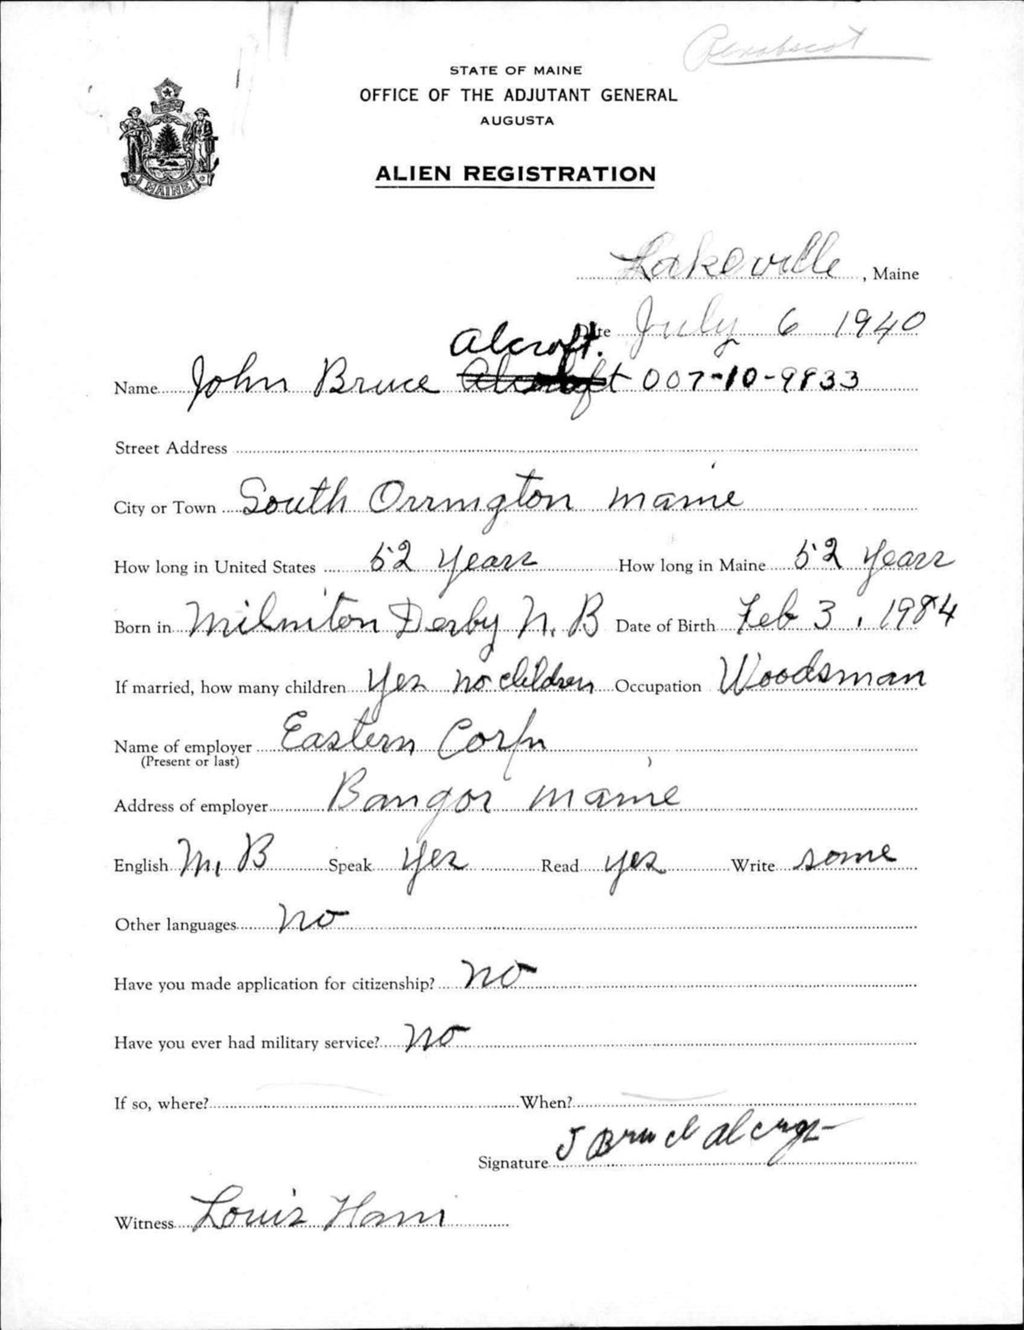 Penobscot
STATE OF MAINE
OFFICE OF THE ADJUTANT GENERAL
AUGUSTA
ALIEN REGISTRATION
MAINE
Lakeville, Maine
Date July 6 1940
Alcroft.
Name John Bruce 007-10-9833
Street Address
City or Town South Orrington Maine
How long in United States 52 years How long in Maine 52 years
Born in Derby N. B Date of Birth Feb 3, 1984
If married, how many children Yes no children Occupation Woodsman
Name of employer Eastern Corpn
(Present or last)
Address of employer Bangor Maine
English Speak Yes Read yes Write some
Other languages no
Have you made application for citizenship? no
Have you ever had military service? no
If so, where? When?
Signature J Bruce
Witness Louis Ham